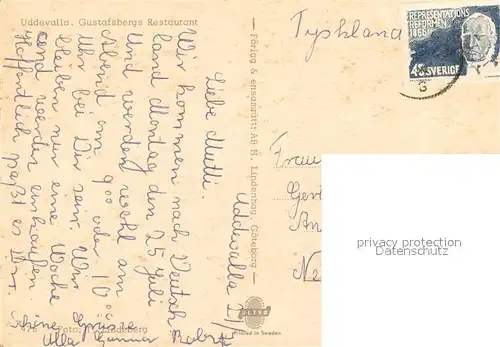 Uddevalla. Gustafsbergs Restaurant
Tyskland
REPRESENTATIONS
REFORMEN
1866
SVERIGE
Uddevalla
Liebe Mutti.
Wir kommen nach Deutsch
land Montag den 25 Juli
und werden wohl am
Abend um 9⁰⁰ oder 10⁰⁰
Uhr bei Dir sein. Wir
bleiben nur eine Woche
und werden einkaufen
Hoffentlich paßt es Dir.
Schöne Grüsse
Ulla Gunnar
Förlag & ensamrätt: AB H. Lindenhag, Göteborg
Frau
Gert
An
Ne
ULTRA
Printed in Sweden
privacy protection
Datenschutz